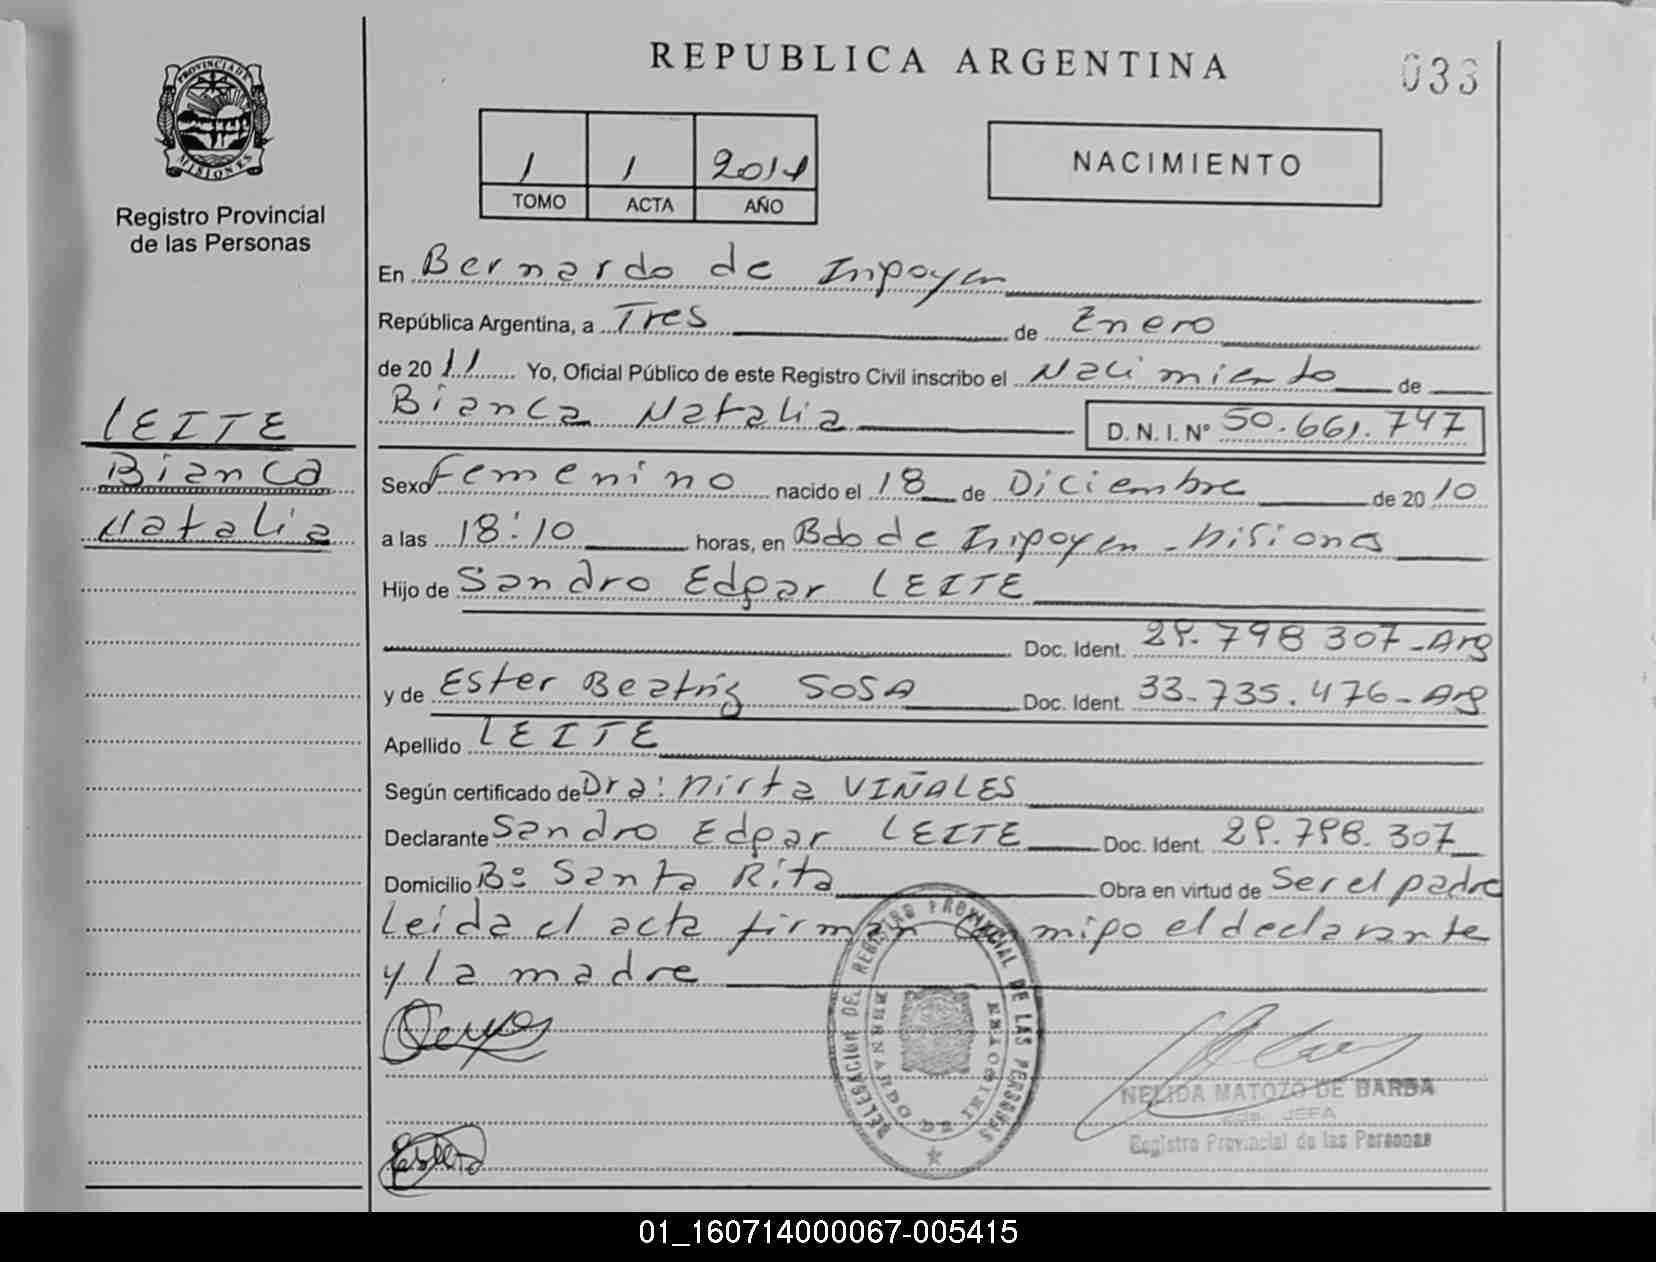 REPUBLICA ARGENTINA
033
PROVINCIA DE
MISIONES
Registro Provincial
de las Personas
1 1 2011
TOMO ACTA AÑO
NACIMIENTO
LEITE
Bianca
Natalia
En Bernardo de Irigoyen
República Argentina, a Tres de Enero
de 2011 Yo, Oficial Público de este Registro Civil inscribo el Nacimiento de
Bianca Natalia D. N. I. Nº 50.661.747
Sexo Femenino nacido el 18 de Diciembre de 2010
a las 18:10 horas, en Bdo de Irigoyen - Misiones
Hijo de Sandro Edgar LEITE
Doc. Ident. 29.798 307 - Arg
y de Ester Beatriz SOSA Doc. Ident. 33.735.476 - Arg
Apellido LEITE
Según certificado de Dra: Mirta VIÑALES
Declarante Sandro Edgar LEITE Doc. Ident. 29.798.307
Domicilio Bº Santa Rita Obra en virtud de Ser el padre
Leida el acta firman conmigo el declarante
y la madre
DELEGACION DEL REGISTRO PROVINCIAL DE LAS PERSONAS
BERNARDO DE IRIGOYEN
NELIDA MATOZO DE BARBA
JEFA
Registro Provincial de las Personas
01_160714000067-005415